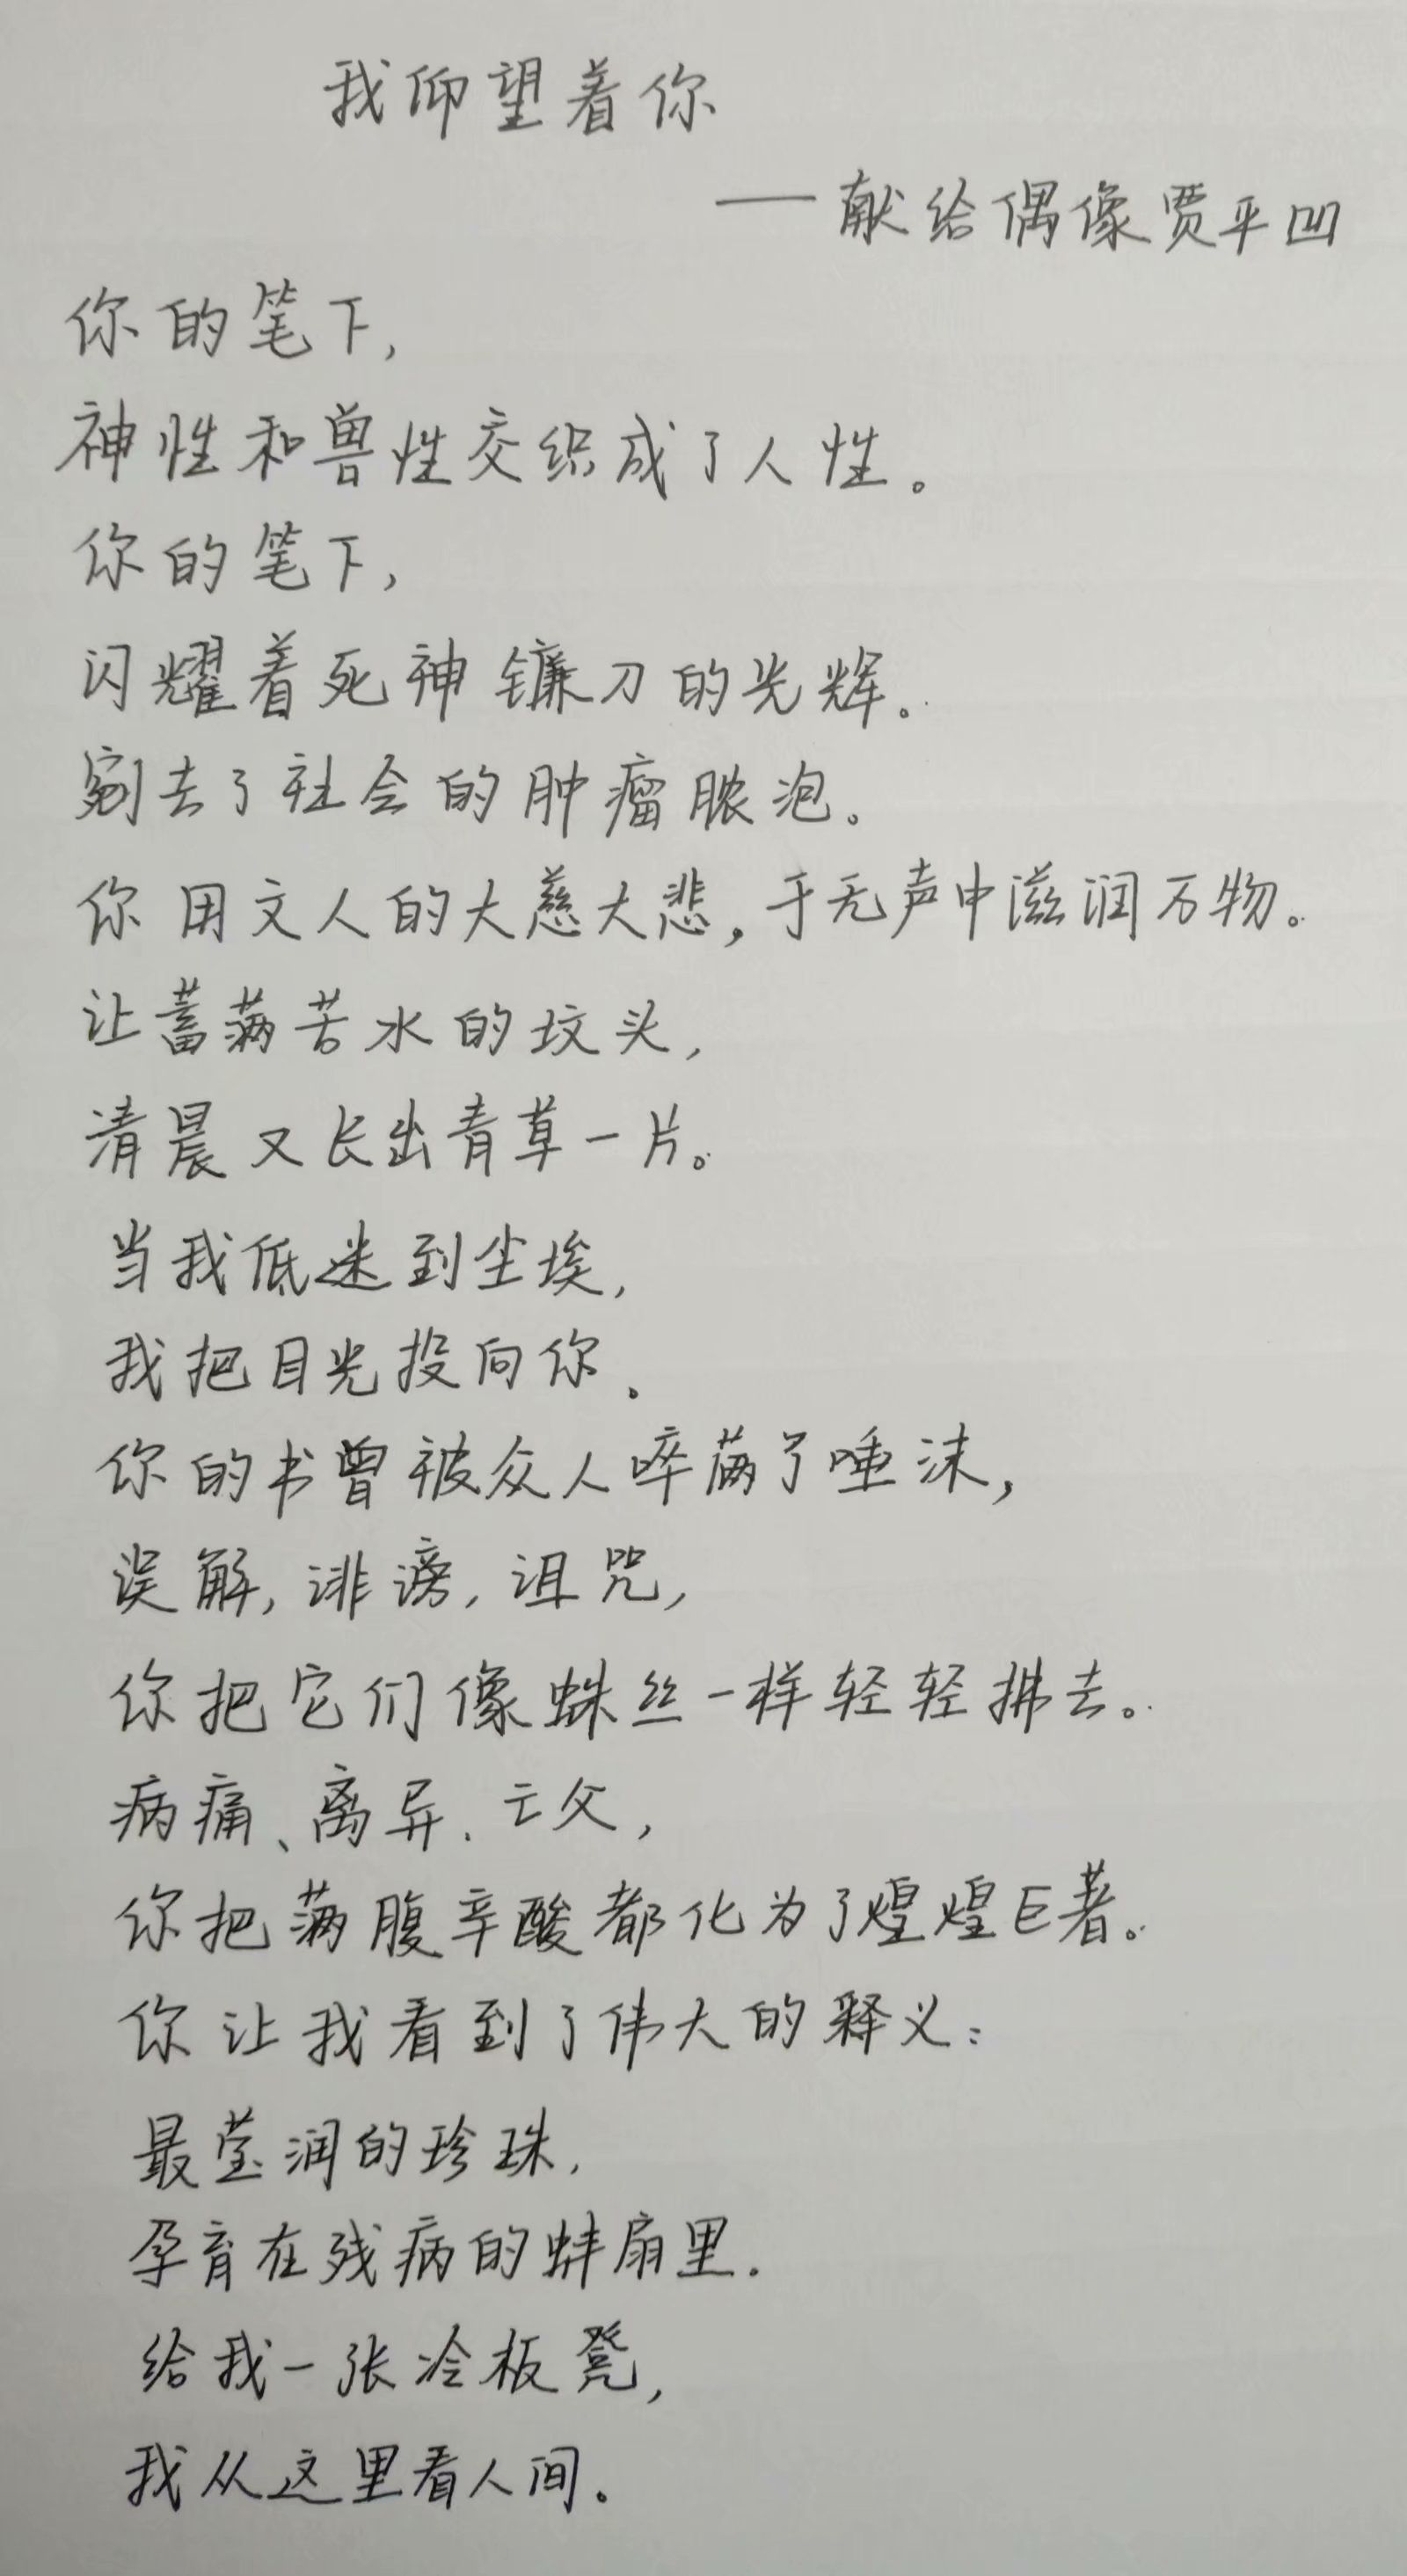 我仰望着你
——献给偶像贾平凹
你的笔下,
神性和兽性交织成了人性。
你的笔下,
闪耀着死神镰刀的光辉。
剜去了社会的肿瘤脓泡。
你用文人的大慈大悲,于无声中滋润万物。
让蓄满苦水的坟头,
清晨又长出青草一片。
当我低迷到尘埃,
我把目光投向你.
你的书曾被众人啐满了唾沫,
误解,诽谤,诅咒,
你把它们像蛛丝一样轻轻拂去。
病痛、离异、亡父,
你把满腹辛酸都化为了煌煌巨著。
你让我看到了伟大的释义:
最莹润的珍珠,
孕育在残病的蚌扇里.
给我一张冷板凳,
我从这里看人间。